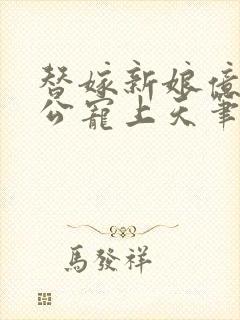 替嫁新娘億
公寵上天筆
馬發祥